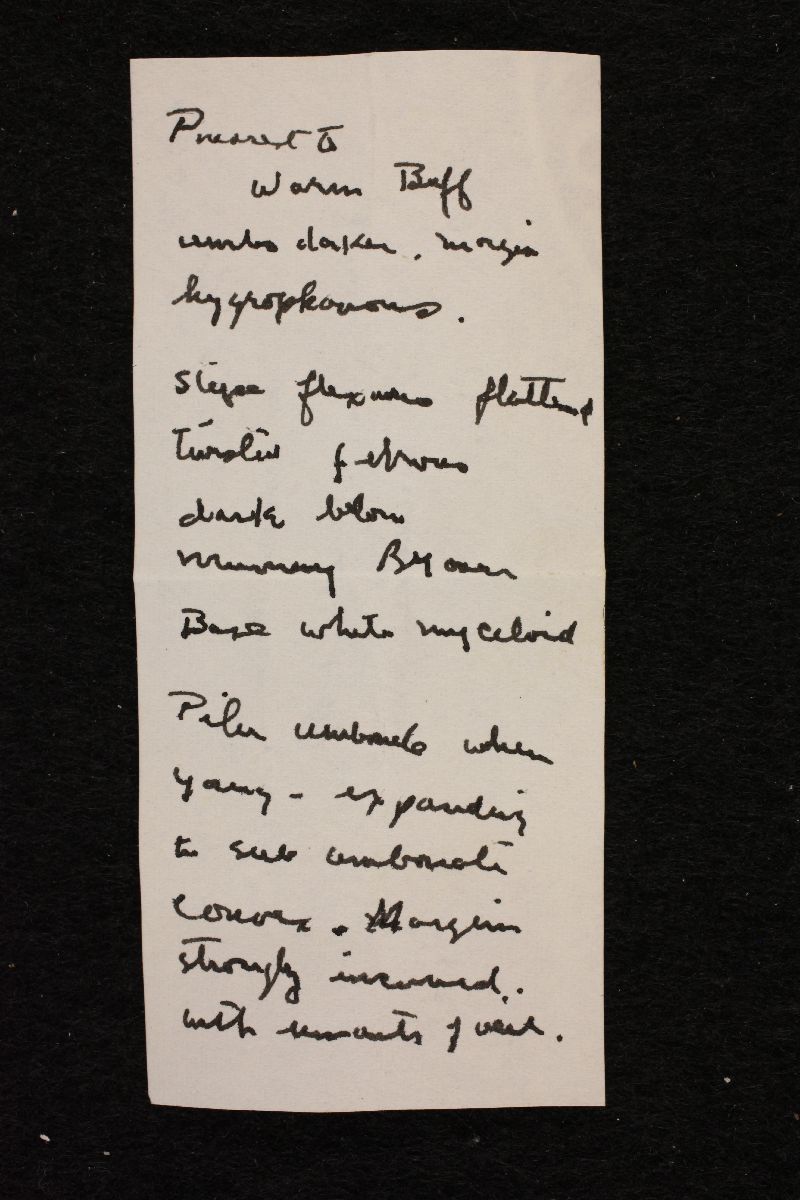 Nearest to
Warm Buff
umbo darker, margin
hygrophanous.
Stipe flexuous flattened
twisted fibrous
dark below
Mummy Brown
Base white myceloid
Pileus umbonate when
young - expanding
to sub umbonate
convex. Margin
strongly incurved.
with remnants of veil.